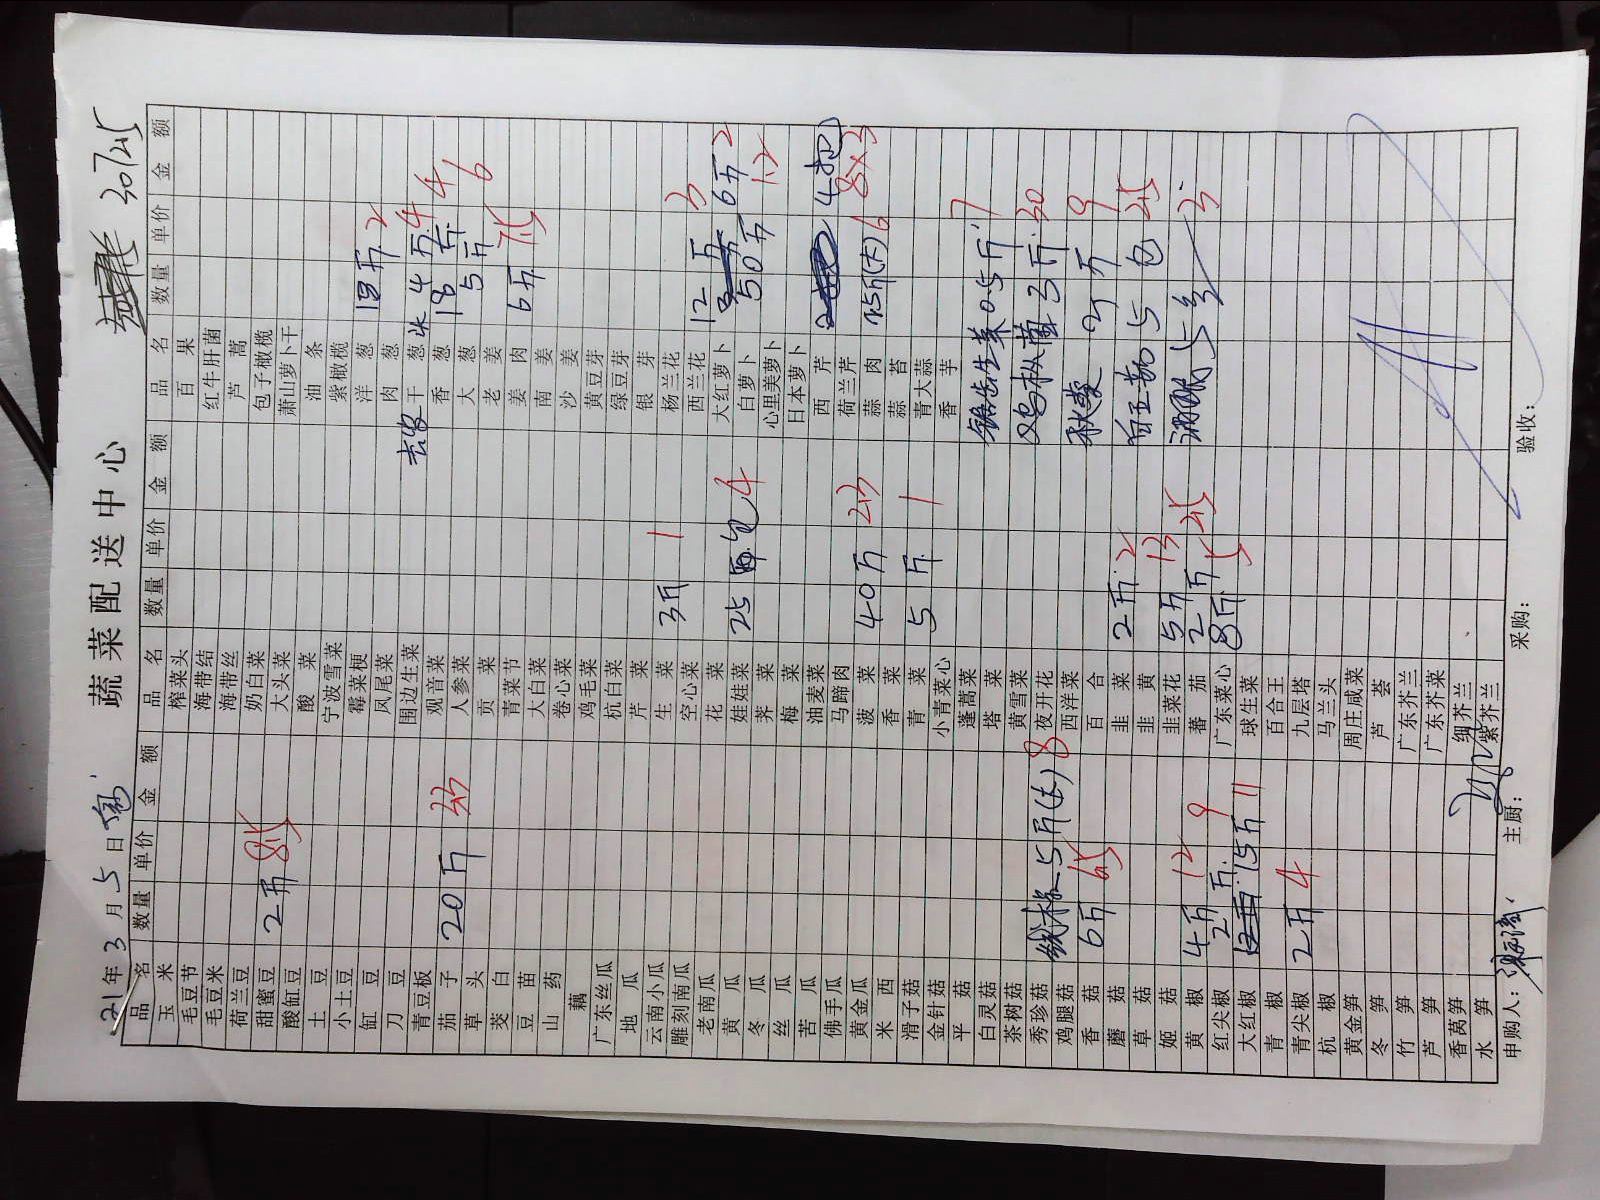 蔬菜配送中心 30725
2021年3月5日
品名 数量 单价 金额 品名 数量 单价 金额 品名 数量 单价 金额
玉米 榨菜头 百果
毛豆节 海带结 红牛肝菌
毛豆米 海带丝 芦蒿
荷兰豆 奶白菜 包子橄榄
甜蜜豆 2斤 85 大头菜 萧山萝卜干
酸缸豆 酸菜 油条
土豆 宁波雪菜 紫橄榄
小土豆 霉菜梗 洋葱 18斤 2
缸豆 凤尾菜 肉葱
刀豆 围边生菜 干葱 4斤 4
青豆板 观音菜 香葱 18斤 4
茄子 20斤 人参菜 大葱 5斤 6
草头 贡菜 老姜
茭白 青菜节 姜肉 6斤
豆苗 大白菜 南姜
山药 卷心菜 沙姜
藕 鸡毛菜 黄豆芽
广东丝瓜 杭白菜 绿豆芽
地瓜 芹菜 银芽
云南小瓜 生菜 3斤 1 杨兰花
雕刻南瓜 空心菜 西兰花 12斤 3
老南瓜 花菜 大红萝卜 6斤 2
黄瓜 娃娃菜 25包 4 白萝卜 50斤 1.2
冬瓜 荠菜 心里美萝卜
丝瓜 梅菜 日本萝卜
苦瓜 油麦菜 西芹 4把
佛手瓜 马蹄肉 荷兰芹 8×3
黄金瓜 菠菜 40斤 蒜肉 15斤(大) 6
米西 香菜 蒜苔
滑子菇 青菜 5斤 1 青大蒜
金针菇 小青菜心 香芋
平菇 蓬蒿菜
白灵菇 塔菜 生菜 0.5斤 7
茶树菇 黄雪菜
秀珍菇 5斤(大) 8 夜开花 菌 3斤 30
鸡腿菇 西洋菜
香菇 6斤 65 百合 2斤 9
蘑菇 韭菜 2斤 2
草菇 韭黄 5包 25
姬菇 韭菜花 5斤 13
黄椒 4斤 12 蕃茄 2斤 25 5 3
红尖椒 2斤 9 广东菜心 8斤 5
大红椒 15斤 11 球生菜
青椒 百合王
青尖椒 2斤 4 九层塔
杭椒 马兰头
黄金笋 周庄咸菜
冬笋 芦荟
竹笋 广东芥兰
芦笋 广东芥菜
香莴笋 细芥兰
水笋 紫芥兰
申购人: 主厨: 采购: 验收: